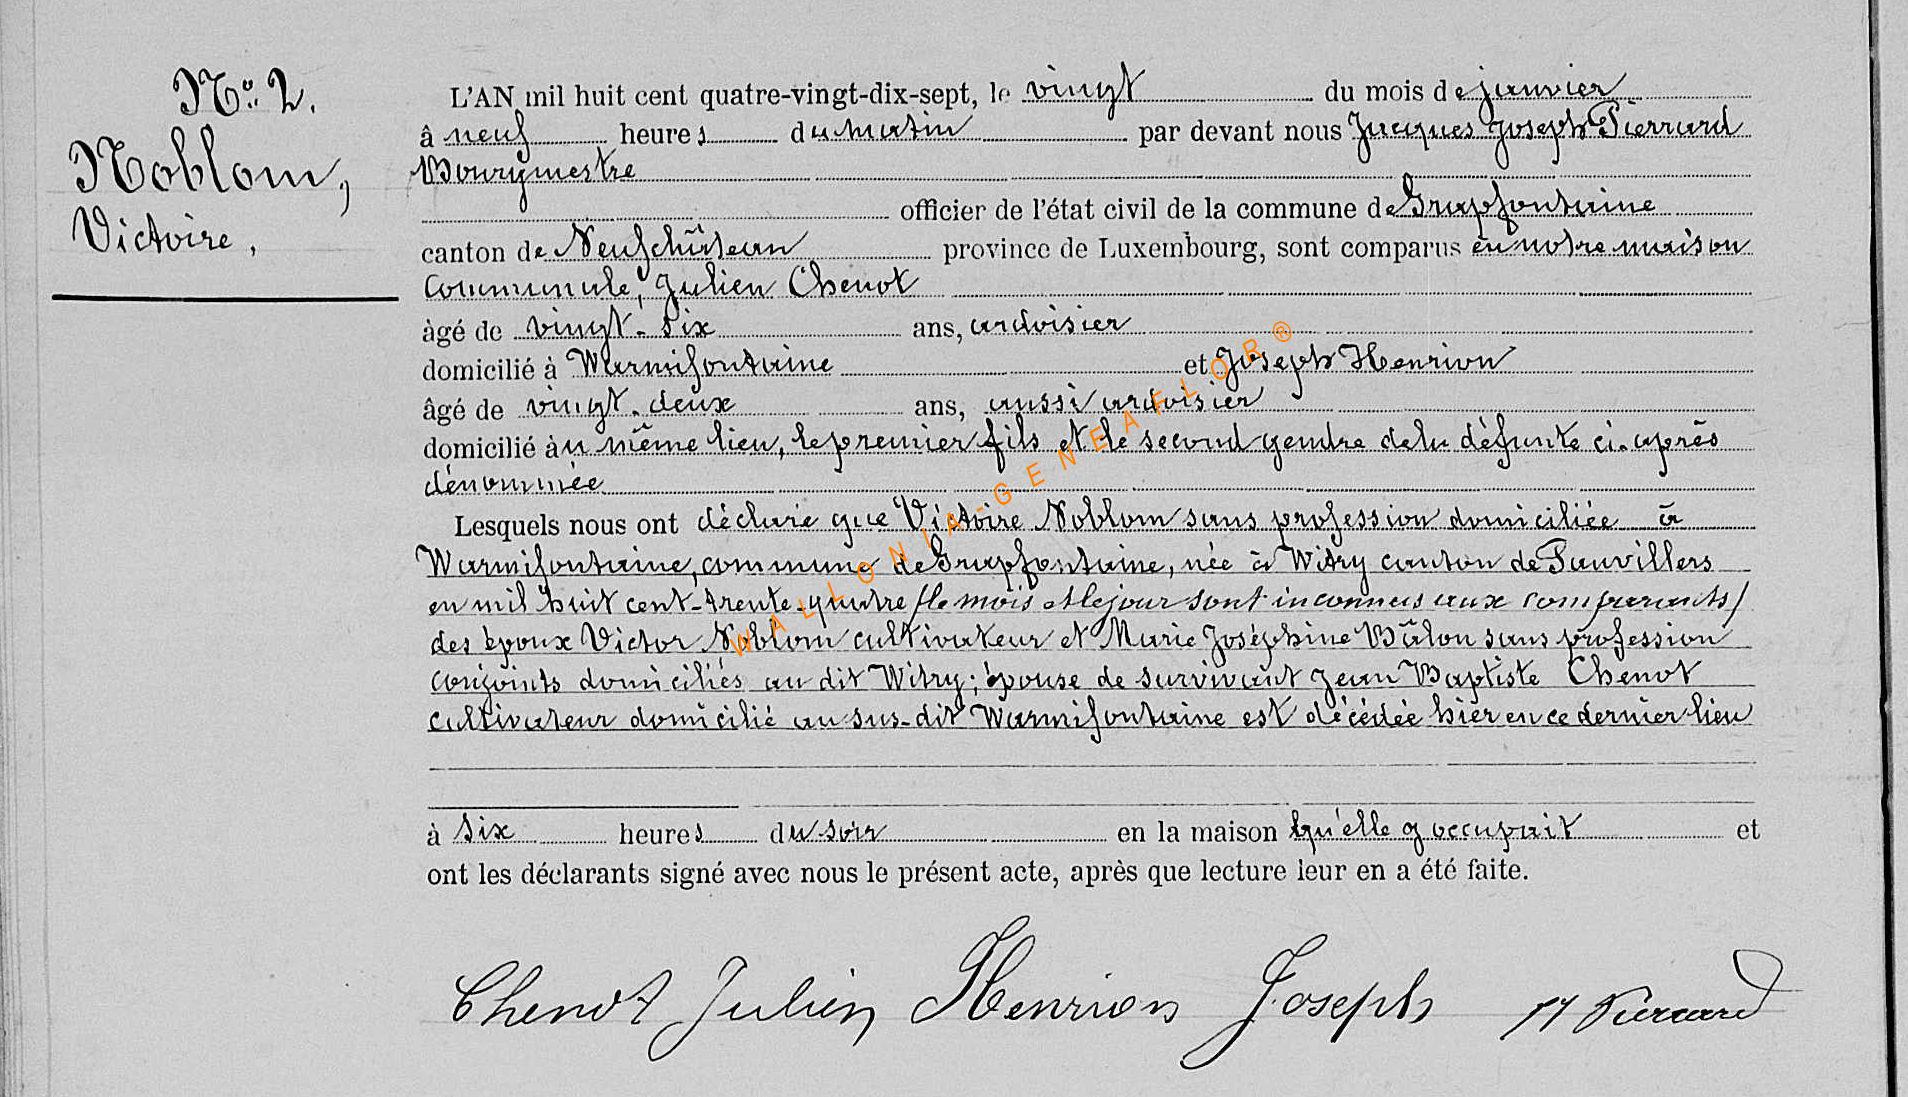 N°: 2.
Noblom,
Victoire,
L'AN mil huit cent quatre-vingt-dix-sept, le vingt du mois de janvier
à neuf heures du matin par devant nous Jacques Joseph Pierrard
Bourgmestre
officier de l'état civil de la commune de Grapfontaine
canton de Neufchâteau province de Luxembourg, sont comparus en notre maison
communale, Julien Chenot
âgé de vingt-six ans, ardoisier
domicilié à Warmifontaine et Joseph Henrion
âgé de vingt-deux ans, aussi ardoisier
domicilié au même lieu, le premier fils et le second gendre de la défunte ci-après
dénommée
Lesquels nous ont déclaré que Victoire Noblom sans profession domiciliée à
Warmifontaine, commune de Grapfontaine, née à Witry canton de Fauvillers
en mil huit cent-trente-quatre (le mois et le jour sont inconnus aux comparants)
des époux Victor Noblom cultivateur et Marie Joséphine Bâlon sans profession
conjoints domiciliés au dit Witry; épouse de survivant Jean Baptiste Chenot
cultivateur domicilié au sus-dit Warmifontaine est décédée hier en ce dernier lieu
à six heures du soir en la maison qu'elle y occupait et
ont les déclarants signé avec nous le présent acte, après que lecture leur en a été faite.
Chenot Julien Henrion Joseph JJ Pierrard
WALLONIA-GENEAFLOR®